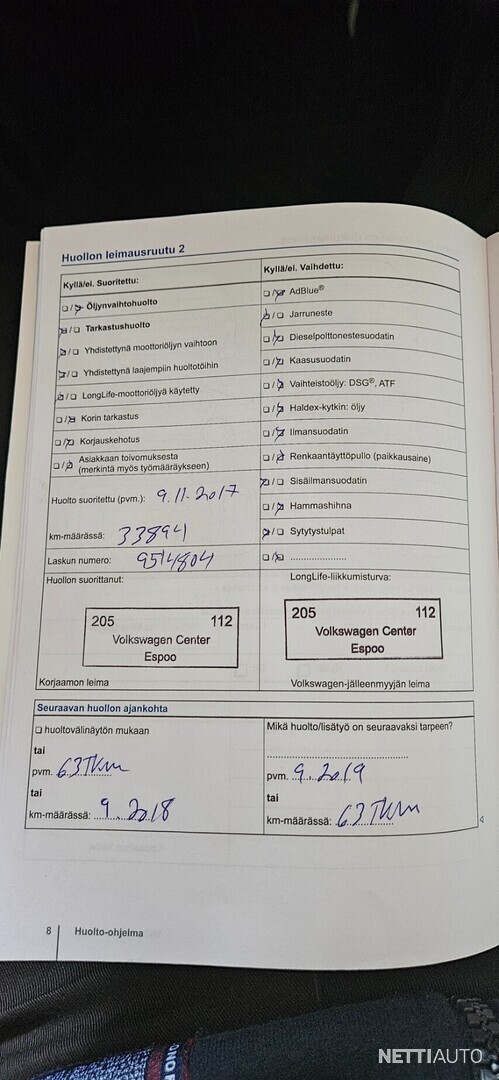 Huollon leimausruutu 2
Kyllä/ei. Suoritettu:
☐/☒ Öljynvaihtohuolto
☒/☐ Tarkastushuolto
☒/☐ Yhdistettynä moottoriöljyn vaihtoon
☒/☐ Yhdistettynä laajempiin huoltotöihin
☒/☐ LongLife-moottoriöljyä käytetty
☐/☒ Korin tarkastus
☐/☒ Korjauskehotus
☐/☒ Asiakkaan toivomuksesta
(merkintä myös työmääräykseen)
Huolto suoritettu (pvm.): 9.11.2017
km-määrässä: 33894
Laskun numero: 9514804
Huollon suorittanut:
205 112
Volkswagen Center
Espoo
Korjaamon leima
Kyllä/ei. Vaihdettu:
☐/☒ AdBlue®
☒/☐ Jarruneste
☐/☒ Dieselpolttonestesuodatin
☐/☒ Kaasusuodatin
☐/☒ Vaihteistoöljy: DSG®, ATF
☐/☒ Haldex-kytkin: öljy
☐/☒ Ilmansuodatin
☐/☒ Renkaantäyttöpullo (paikkausaine)
☒/☐ Sisäilmansuodatin
☐/☒ Hammashihna
☒/☐ Sytytystulpat
☐/☒ ....................
LongLife-liikkumisturva:
205 112
Volkswagen Center
Espoo
Volkswagen-jälleenmyyjän leima
Seuraavan huollon ajankohta
☐ huoltovälinäytön mukaan
tai
pvm. 63Tkm
tai
km-määrässä: 9. 2018
Mikä huolto/lisätyö on seuraavaksi tarpeen?
pvm. 9. 2019
tai
km-määrässä: 63Tkm
8 Huolto-ohjelma
NETTIAUTO